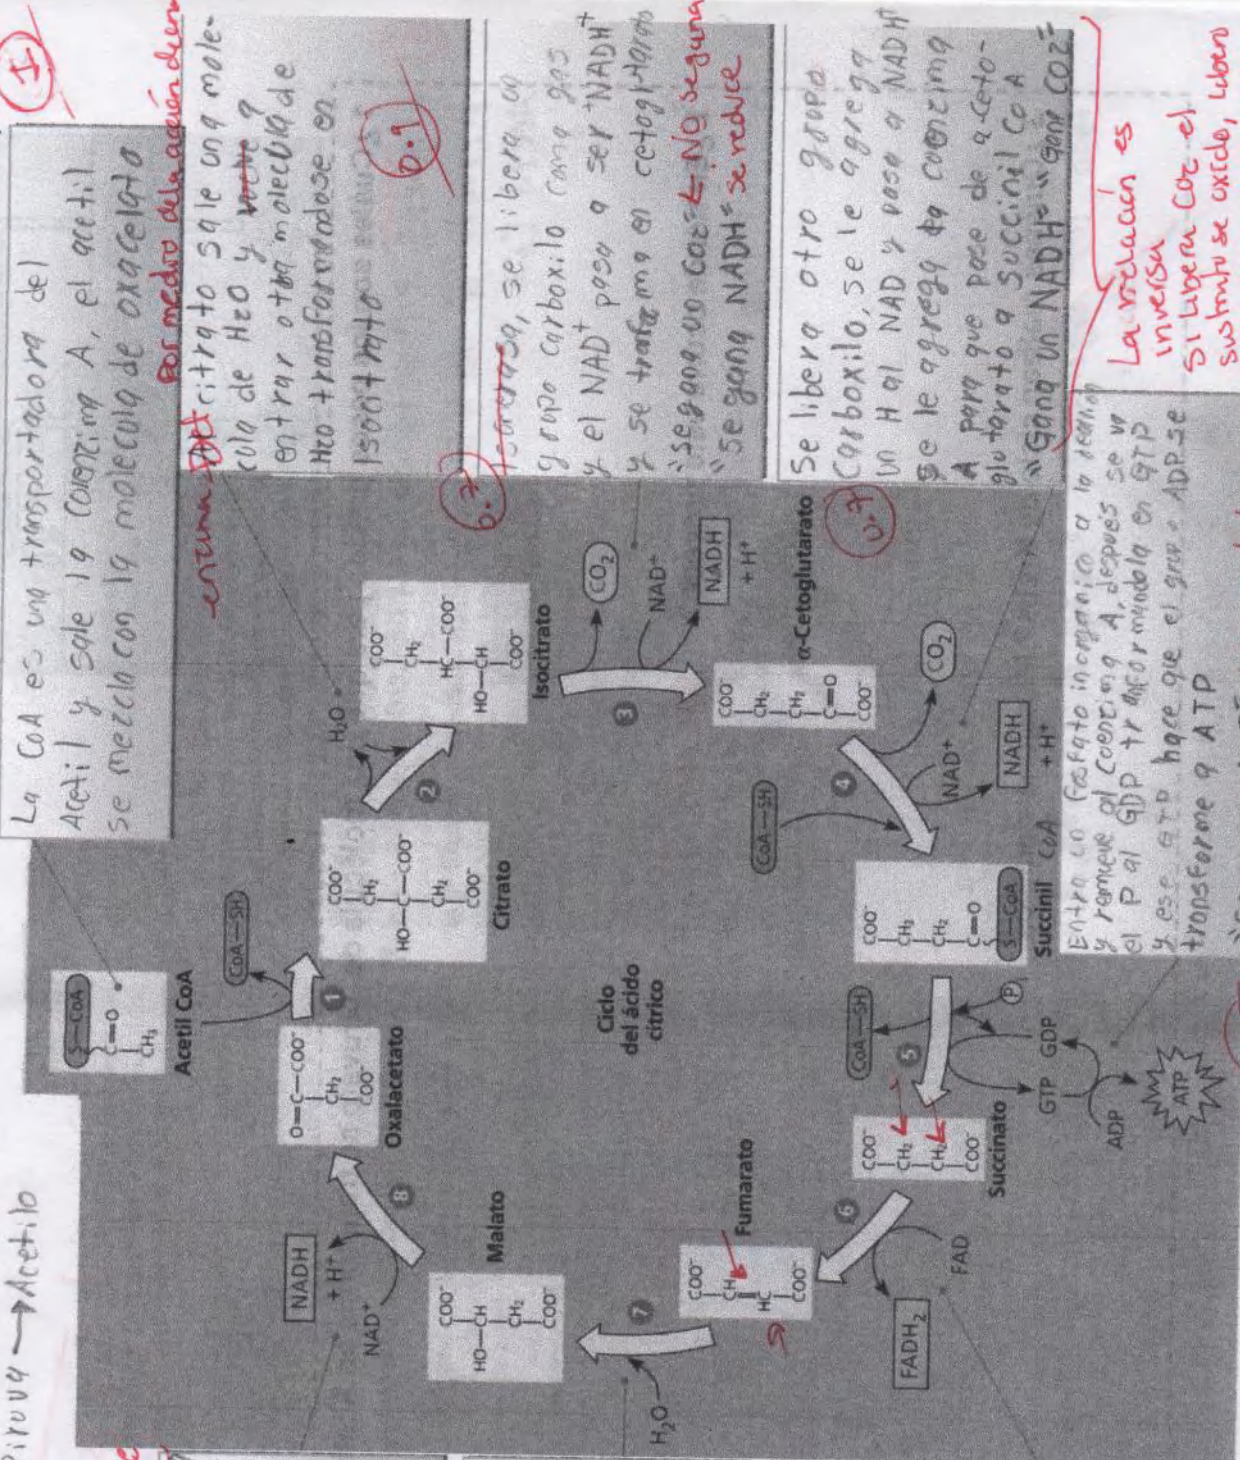 Piruva → Acetilo
1
La CoA es una transportadora del
Acetil y sale la coenzima A, el acetil
se mezcla con la molecula de oxacelato
por medio de la acción de una
enzima
Del citrato sale una mole-
cula de H2O y vuelve a
entrar otra molecula de
H2O transformandose en
Isocitrato
0.9
se libera un
grupo carboxilo como gas
y el NAD+ pasa a ser NADH+
y se transforma en cetoglutarato
"Se gana un CO2" ← No se gana
"Se gana NADH" se reduce
0.7
Se libera otro grupo
Carboxilo, se le agrega
un H al NAD y pasa a NADH+
se le agrega la coenzima
A para que pase de a-ceto-
glutarato a succinil CoA
"Gana un NADH" "Gana CO2"
0.7
La relación es
inversa
Si libera CO2 el
sustrato se oxida, libero
Entra un fosfato inorganico a la reacción
y remueve al Coenzima A, despues se va
el P al GDP transformandola en GTP
y ese grupo hace que el grupo ADP se
transforme a ATP
S—CoA
C=O
CH3
Acetil CoA
CoA—SH
1
O=C—COO-
CH2
COO-
Oxalacetato
COO-
CH2
HO—C—COO-
CH2
COO-
Citrato
2
H2O
COO-
CH2
HC—COO-
HO—CH
COO-
Isocitrato
3
CO2
NAD+
NADH
+ H+
COO-
CH2
CH2
C=O
COO-
α-Cetoglutarato
4
CoA—SH
CO2
NAD+
NADH
+ H+
COO-
CH2
CH2
C=O
S—CoA
Succinil CoA
5
CoA—SH
P
GTP
GDP
ADP
ATP
COO-
CH2
CH2
COO-
Succinato
6
FAD
FADH2
COO-
CH
HC
COO-
Fumarato
7
H2O
COO-
HO—CH
CH2
COO-
Malato
8
NAD+
NADH
+ H+
Ciclo
del ácido
cítrico